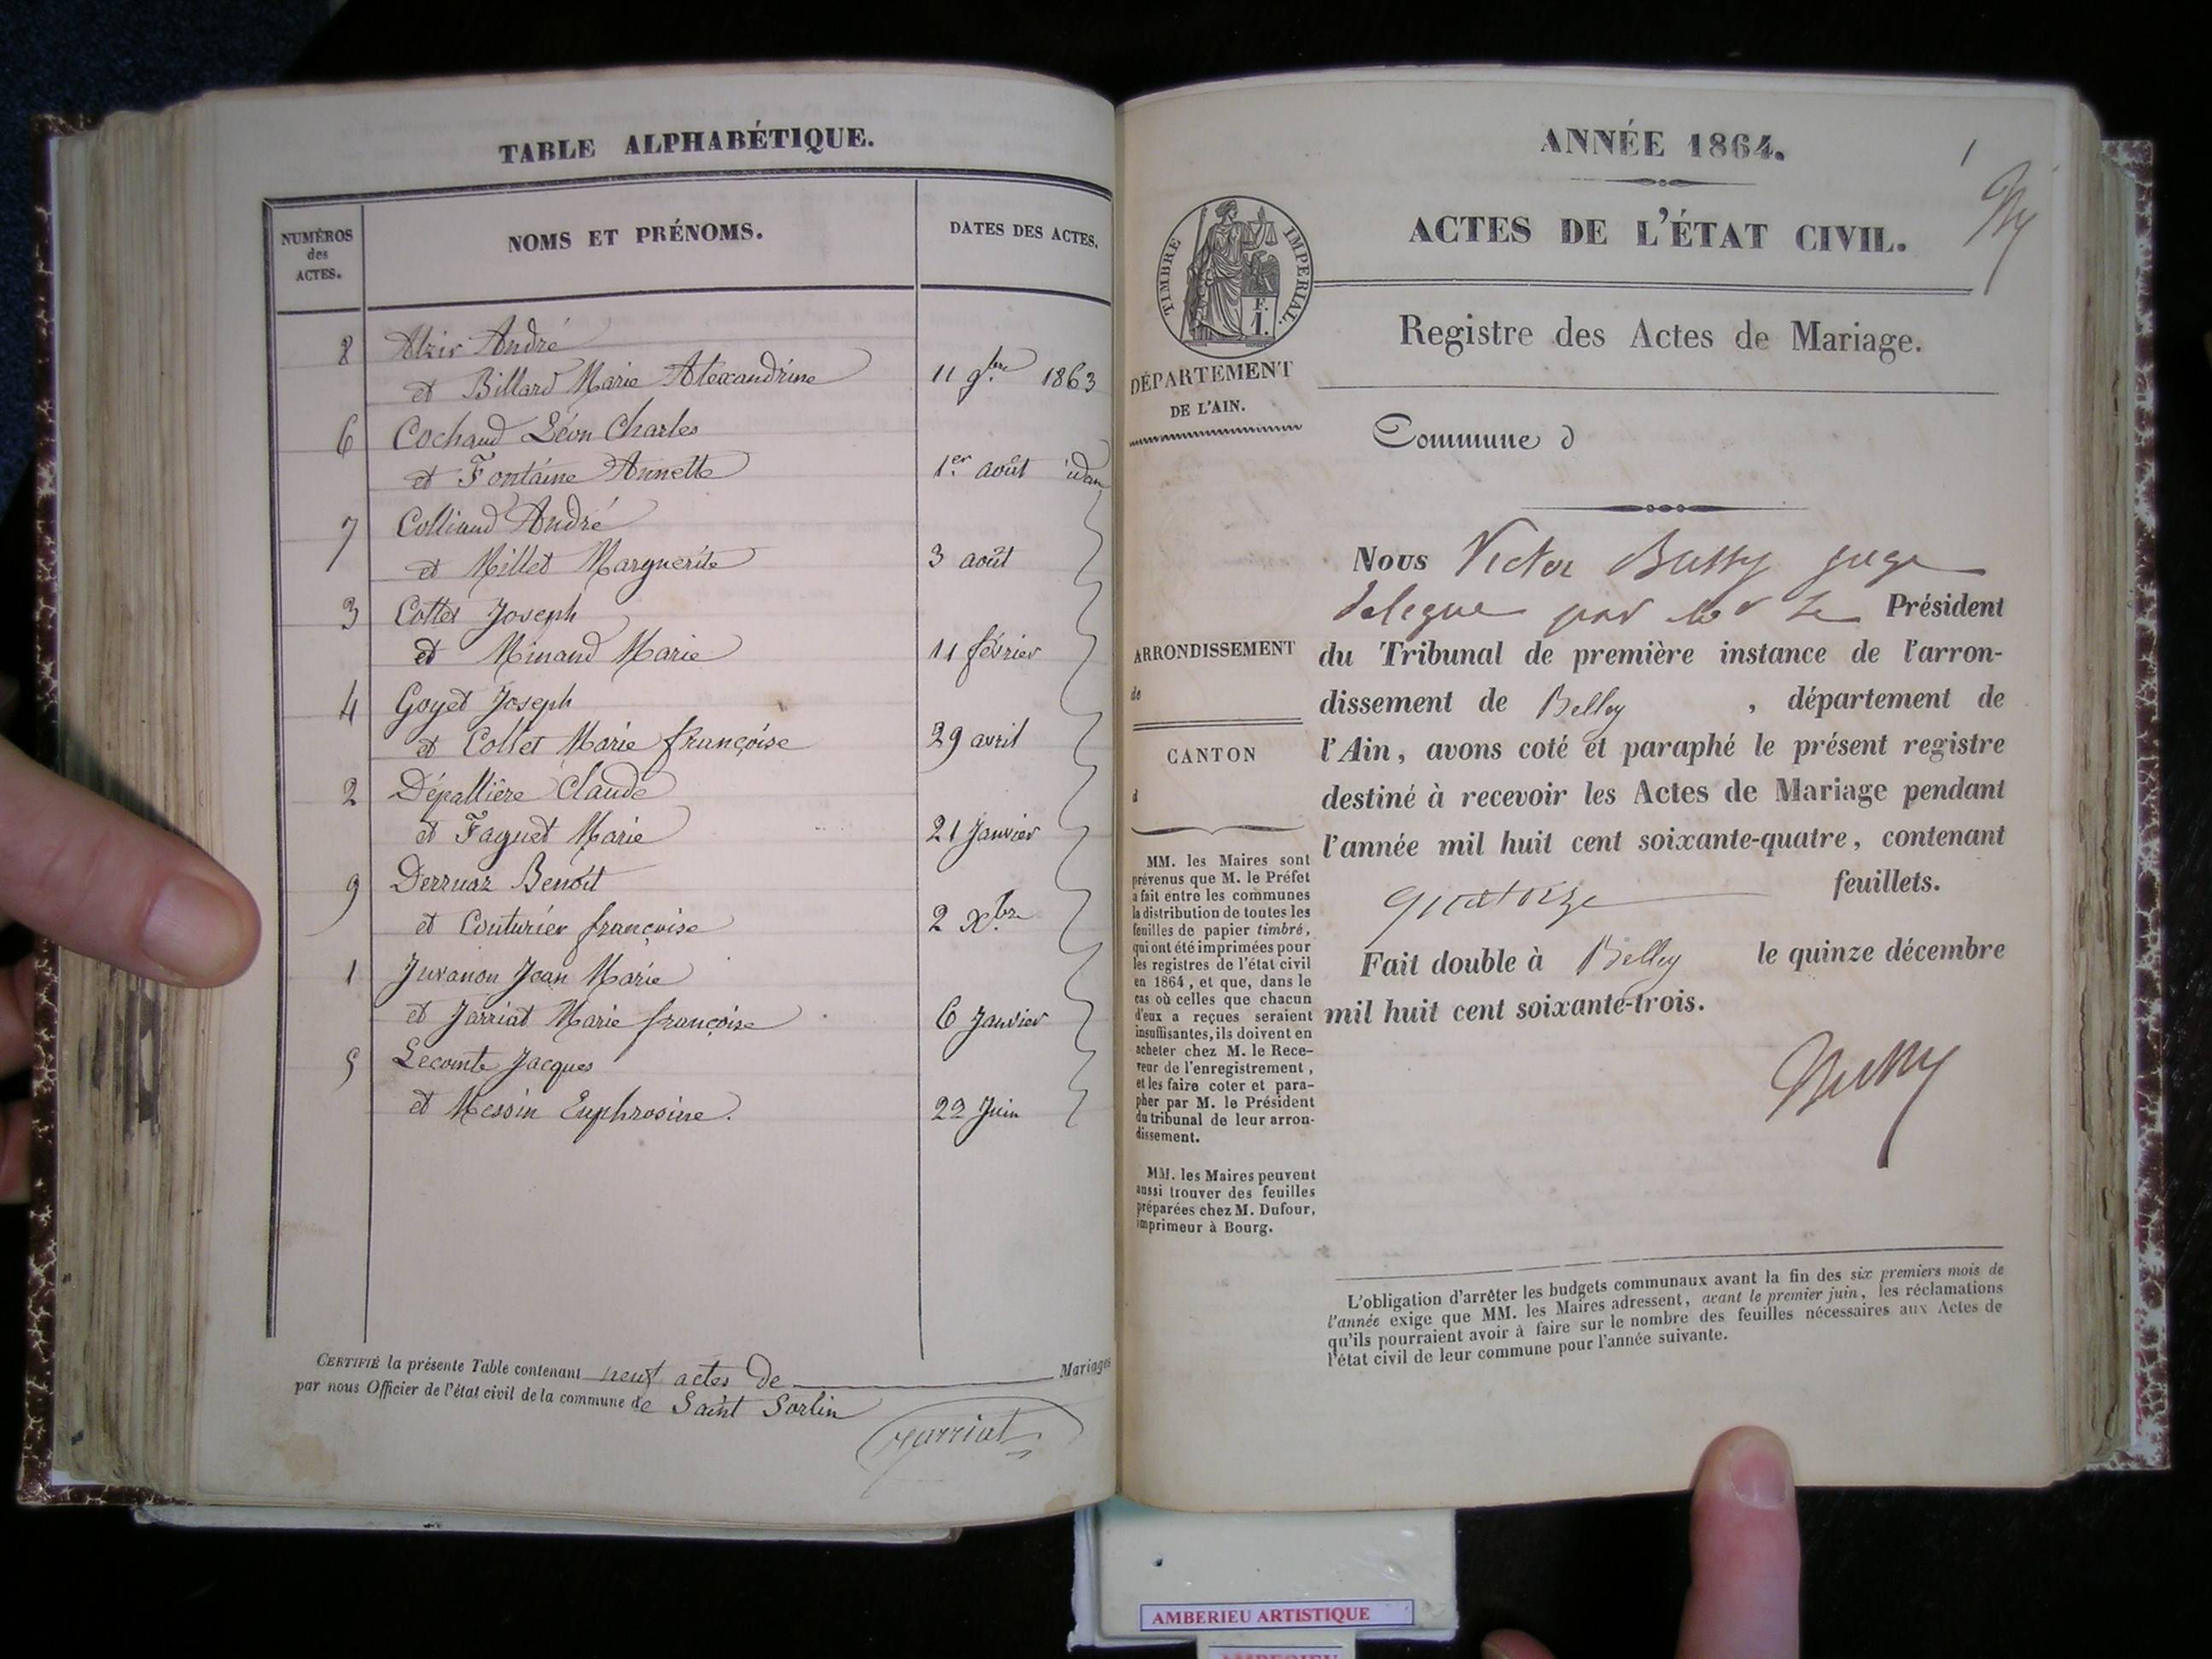 TABLE ALPHABÉTIQUE.
NUMÉROS
des
ACTES.
NOMS ET PRÉNOMS.
DATES DES ACTES.
8 Alzir André
et Billard Marie Alexandrine 11 9bre 1863
6 Cochaud Léon Charles
et Fontaine Annette 1er août idem
7 Colliand André
et Millet Marguerite 3 août
3 Cottet Joseph
et Minand Marie 11 février
4 Goyet Joseph
et Collet Marie françoise 29 avril
2 Dépallière Claude
et Faguet Marie 21 Janvier
9 Derruaz Benoît
et Couturier françoise 2 Xbre
1 Juvanon Jean Marie
et Jarriat Marie françoise 6 Janvier
5 Lecomte Jacques
et Messin Euphrosine. 22 Juin
CERTIFIÉ la présente Table contenant neuf actes de Mariages
par nous Officier de l'état civil de la commune de Saint Sorlin
Jarriat
ANNÉE 1864.
1
ACTES DE L'ÉTAT CIVIL.
TIMBRE IMPERIAL.
F.
1.
Registre des Actes de Mariage.
DÉPARTEMENT
DE L'AIN.
Commune d
ARRONDISSEMENT
de
CANTON
d
MM. les Maires sont
prévenus que M. le Préfet
a fait entre les communes
la distribution de toutes les
feuilles de papier timbré,
qui ont été imprimées pour
les registres de l'état civil
en 1864, et que, dans le
cas où celles que chacun
d'eux a reçues seraient
insuffisantes, ils doivent en
acheter chez M. le Rece-
veur de l'enregistrement,
et les faire coter et para-
pher par M. le Président
du tribunal de leur arron-
dissement.
MM. les Maires peuvent
aussi trouver des feuilles
préparées chez M. Dufour,
imprimeur à Bourg.
Nous Victor Bussy juge
délégué par Mr Le Président
du Tribunal de première instance de l'arron-
dissement de Belley, département de
l'Ain, avons coté et paraphé le présent registre
destiné à recevoir les Actes de Mariage pendant
l'année mil huit cent soixante-quatre, contenant
quatorze feuillets.
Fait double à Belley le quinze décembre
mil huit cent soixante-trois.
Bussy
L'obligation d'arrêter les budgets communaux avant la fin des six premiers mois de
l'année exige que MM. les Maires adressent, avant le premier juin, les réclamations
qu'ils pourraient avoir à faire sur le nombre des feuilles nécessaires aux Actes de
l'état civil de leur commune pour l'année suivante.
AMBERIEU ARTISTIQUE
AMBERIEU